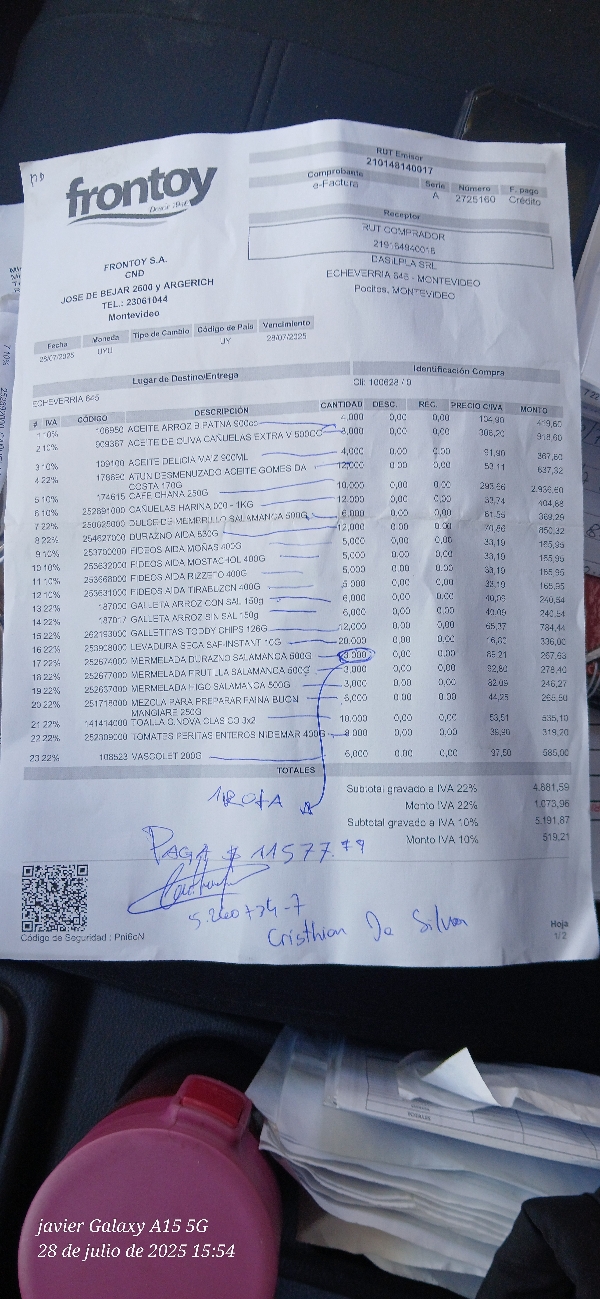 frontoy
RUT Emisor
210148140017
Comprobante Serie Número F. pago
e-Factura A 2725160 Crédito
Receptor
RUT COMPRADOR
DASILPLA SRL
ECHEVERRIA 645 - MONTEVIDEO
Pocitos, MONTEVIDEO
FRONTOY S.A.
CND
JOSE DE BEJAR 2600 y ARGERICH
TEL.: 23061044
Montevideo
Fecha Moneda Tipo de Cambio Código de País Vencimiento
28/07/2025 UYU UY 28/07/2025
Lugar de Destino/Entrega Identificación Compra
ECHEVERRIA 645 Cli: 100628 / 0
# IVA CÓDIGO DESCRIPCIÓN CANTIDAD DESC. REC. PRECIO C/IVA MONTO
1 10% 106950 ACEITE ARROZ B PATNA 900cc 4,000 0,00 0,00 104,90 419,60
2 10% 909367 ACEITE DE OLIVA CAÑUELAS EXTRA V 500CC 3,000 0,00 0,00 306,20 918,60
3 10% 109100 ACEITE DELICIA MAIZ 900ML 4,000 0,00 0,00 91,90 367,60
4 22% ATUN DESMENUZADO ACEITE GOMES DA COSTA 170G 12,000 0,00 0,00 53,11 637,32
5 10% 174615 CAFE CHANA 250G 10,000 0,00 0,00
6 10% 252891000 CAÑUELAS HARINA 000 - 1KG 12,000 0,00 0,00 33,74 404,88
7 22% 250025000 DULCE DE MEMBRILLO SALAMANCA 500G 6,000 0,00 0,00 61,55 369,29
8 22% 254627000 DURAZNO AIDA 830G 12,000 0,00 0,00 70,86 850,32
9 10% 253700000 FIDEOS AIDA MOÑAS 400G 5,000 0,00 0,00 33,19 165,95
10 10% 253632000 FIDEOS AIDA MOSTACHOL 400G 5,000 0,00 0,00 33,19 165,95
11 10% 253668000 FIDEOS AIDA RIZZETO 400G 5,000 0,00 0,00 33,19 165,95
12 10% 253631000 FIDEOS AIDA TIRABUZON 400G 5,000 0,00 0,00 33,19 165,95
13 22% 187000 GALLETA ARROZ CON SAL 150g 6,000 0,00 0,00 40,09 240,54
14 22% 187017 GALLETA ARROZ SIN SAL 150g 6,000 0,00 0,00 40,09 240,54
15 22% 262193000 GALLETITAS TODDY CHIPS 126G 12,000 0,00 0,00 65,37 784,44
16 22% 253908000 LEVADURA SECA SAF-INSTANT 10G 20,000 0,00 0,00 16,80 336,00
17 22% 252674000 MERMELADA DURAZNO SALAMANCA 500G 3,000 0,00 0,00 85,21 257,63
18 22% 252677000 MERMELADA FRUTILLA SALAMANCA 500G 3,000 0,00 0,00 92,80 278,40
19 22% 252637000 MERMELADA HIGO SALAMANCA 500G 3,000 0,00 0,00 82,09 246,27
20 22% 251718000 MEZCLA PARA PREPARAR FAINA BUON MANGIARE 250G 6,000 0,00 0,00 44,25 265,50
21 22% 141414000 TOALLA C.NOVA CLAS CO 3x2 10,000 0,00 0,00 53,51 535,10
22 22% 252309000 TOMATES PERITAS ENTEROS NIDEMAR 400G 8,000 0,00 0,00 39,90 319,20
23 22% 108523 VASCOLET 200G 6,000 0,00 0,00 97,50 585,00
TOTALES
Subtotal gravado a IVA 22% 4.881,59
Monto IVA 22% 1.073,96
Subtotal gravado a IVA 10% 5.191,87
Monto IVA 10% 519,21
1 ROTA
PAGA $ 11577.79
Cristhian Da Silva
Código de Seguridad : Pni6cN
Hoja
1/2
javier Galaxy A15 5G
28 de julio de 2025 15:54